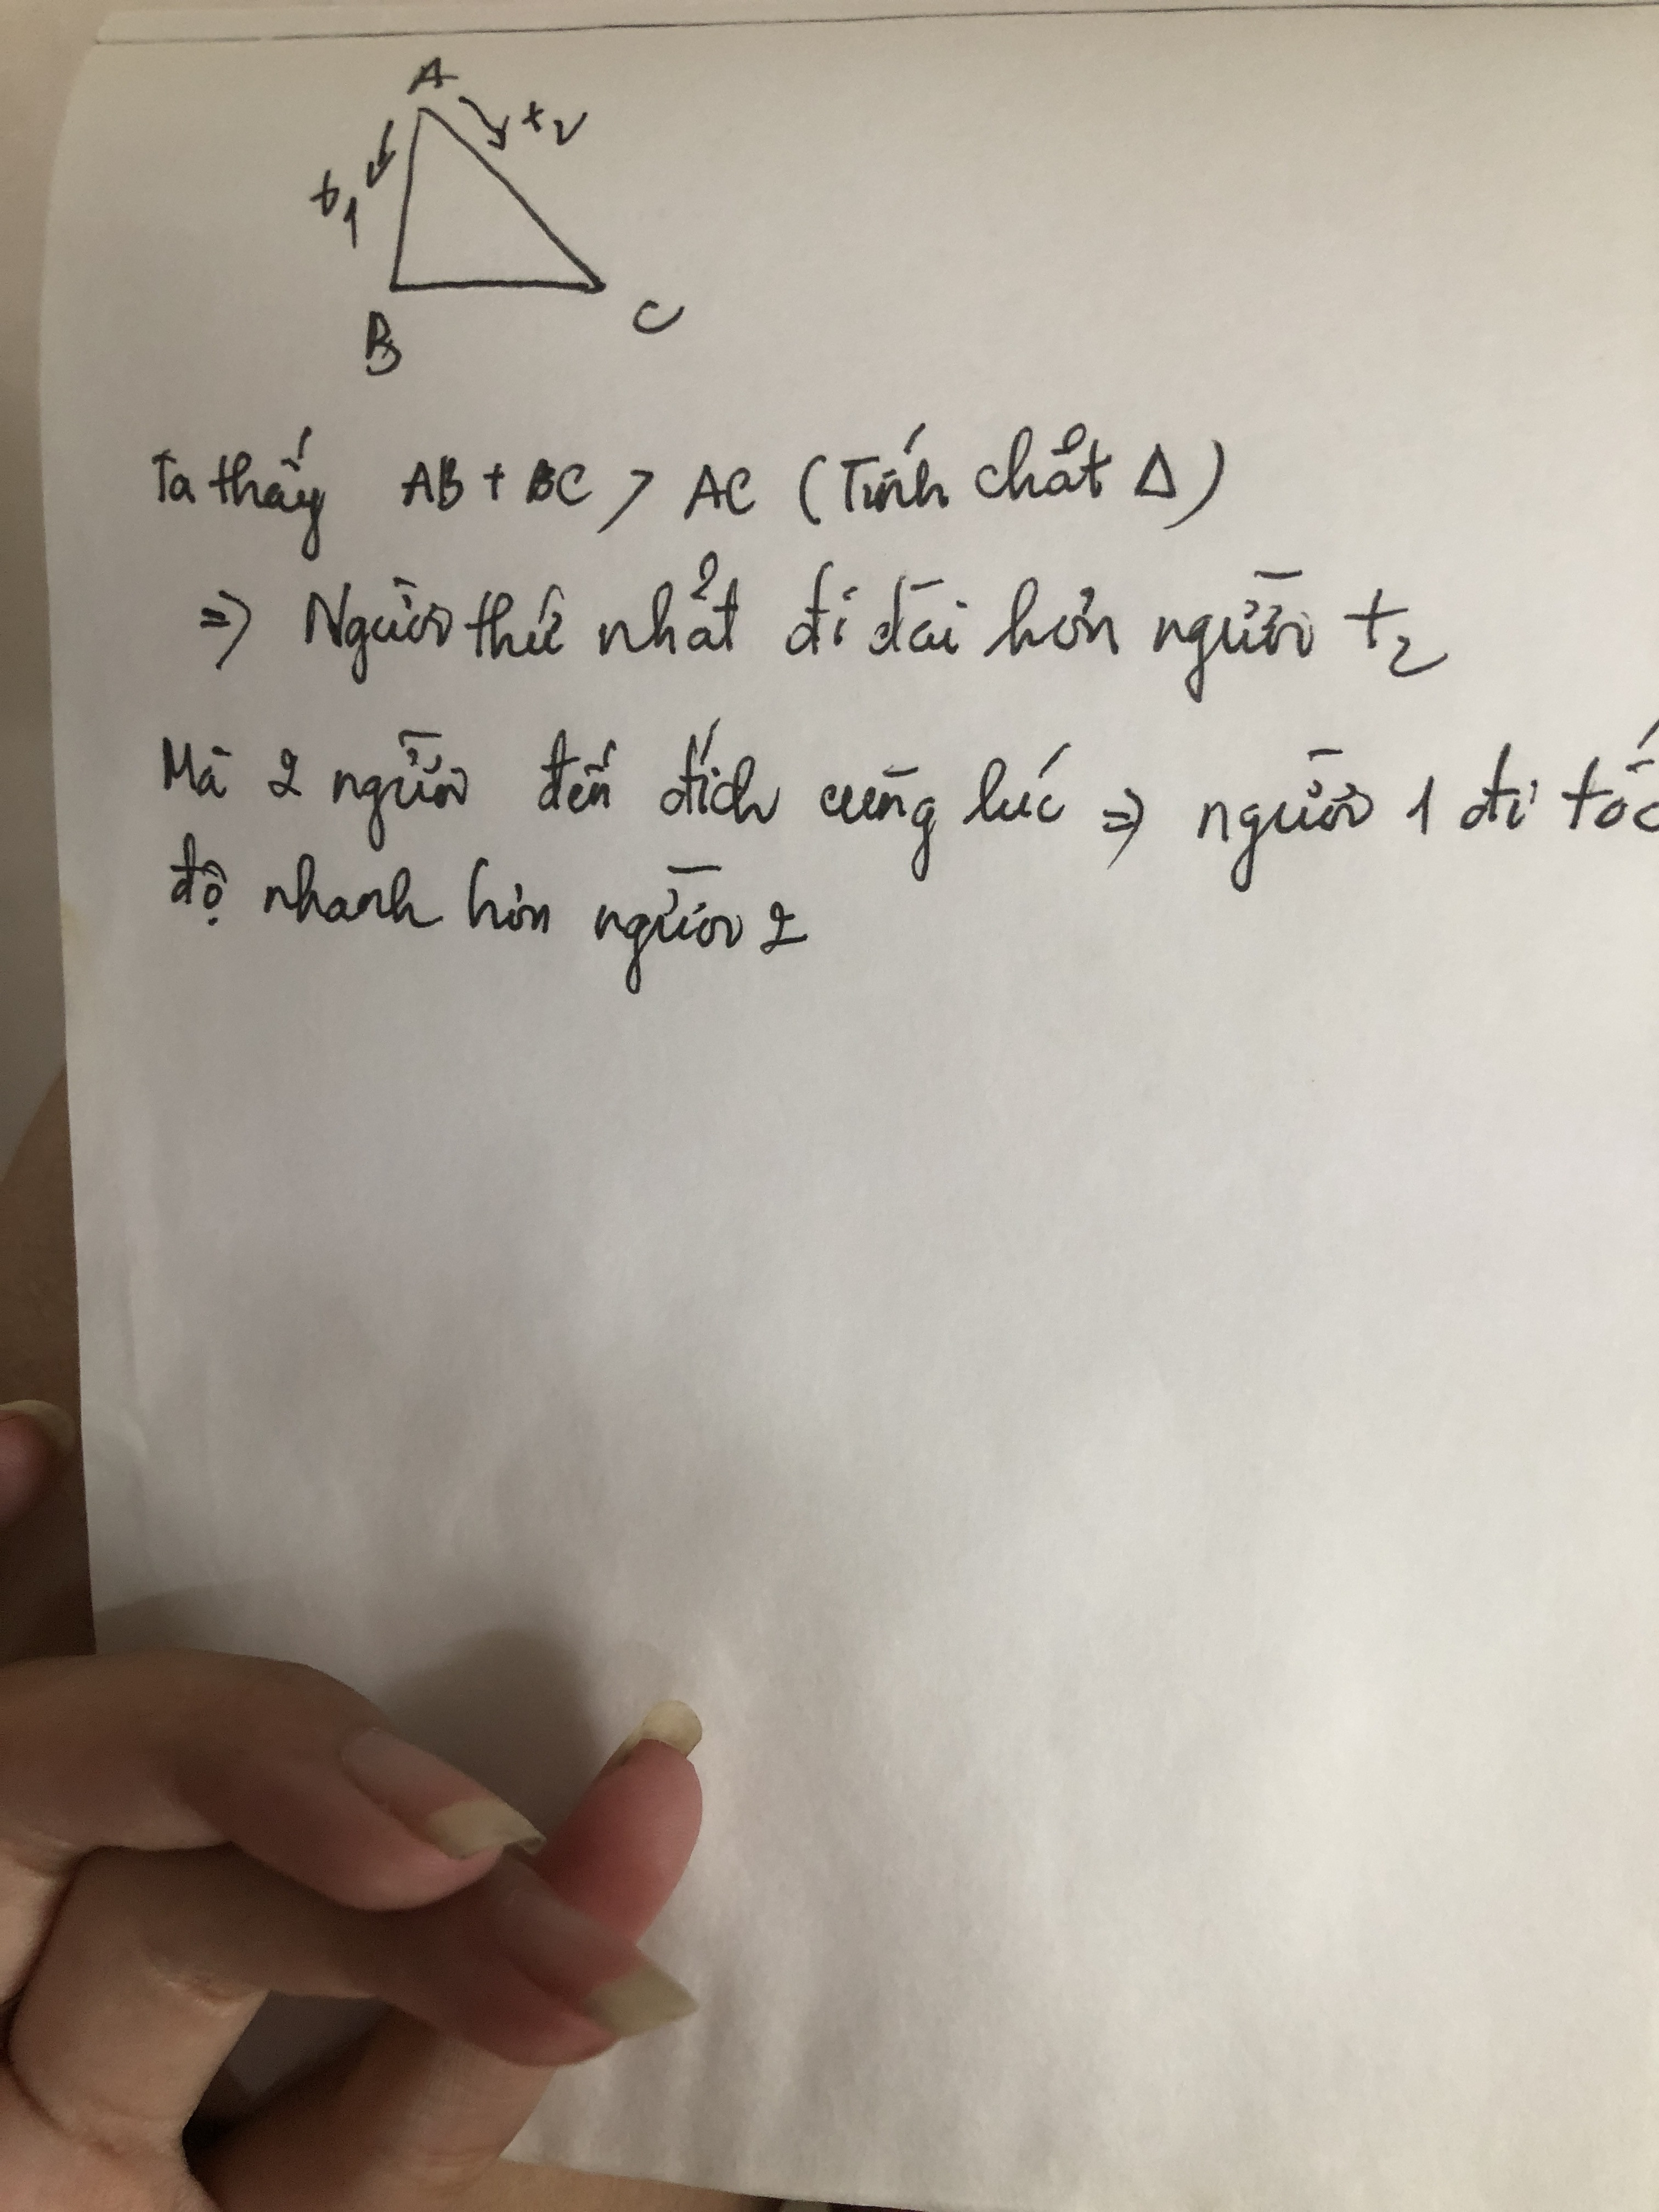 A
t2
t1
B
C
Ta thấy AB + BC > AC (Tính chất Δ)
=> Người thứ nhất đi dài hơn người t2
Mà 2 người đến đích cùng lúc => người 1 đi tốc
độ nhanh hơn người 2